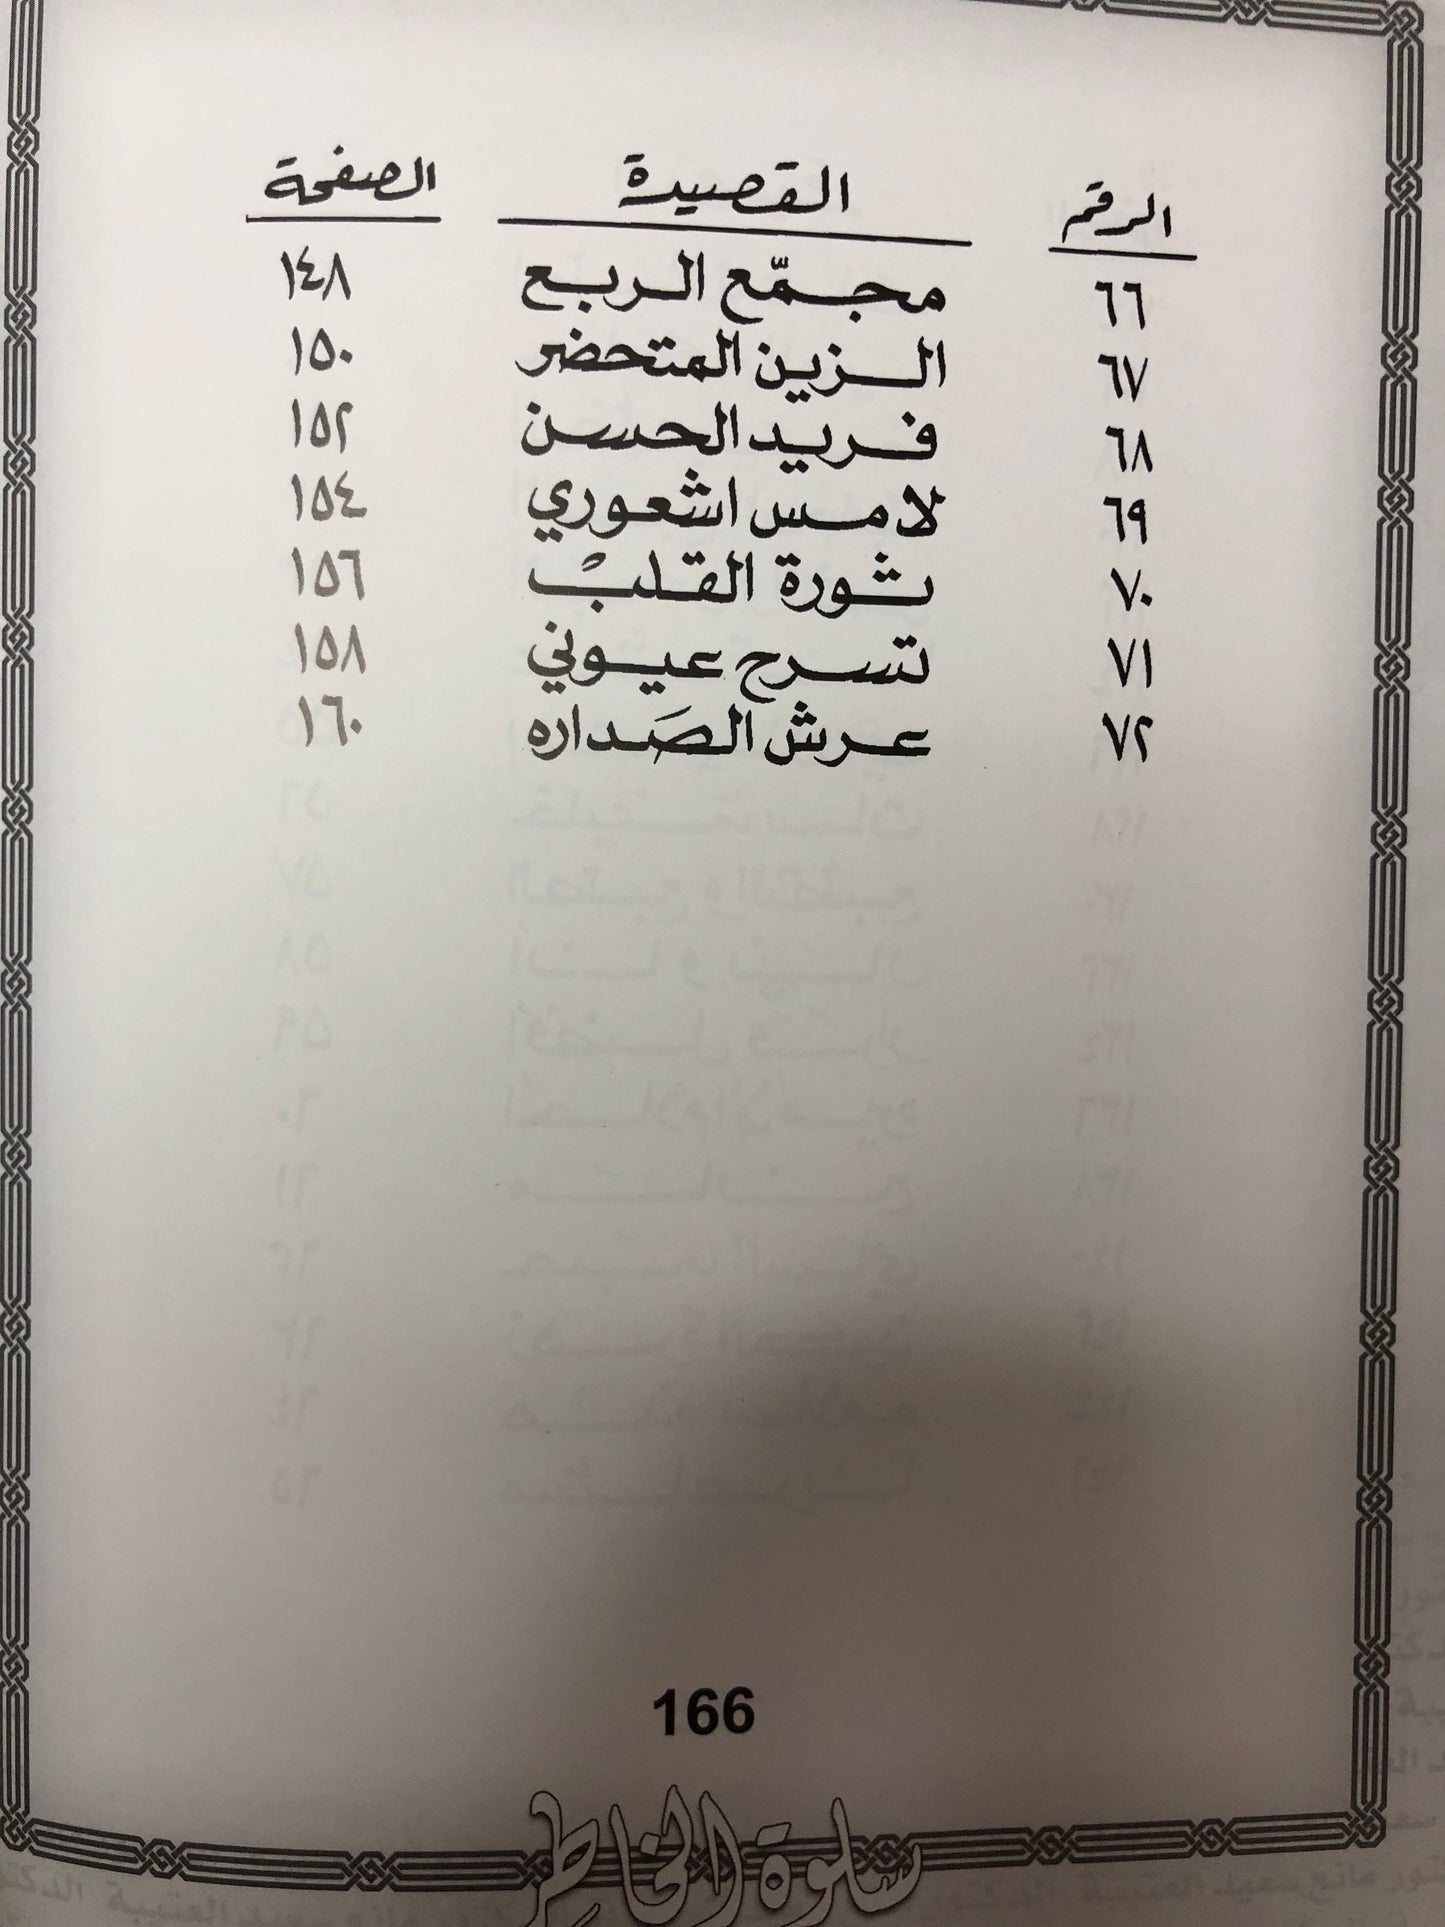 الرقم القصيدة الصفحة
٦٦ مجمّع الربع ١٤٨
٦٧ الزين المتحضر ١٥٠
٦٨ فريد الحسن ١٥٢
٦٩ لامس اشعوري ١٥٤
٧٠ ثورة القلبْ ١٥٦
٧١ تسرح عيوني ١٥٨
٧٢ عرش الصَداره ١٦٠
166
سلوة الخاطر